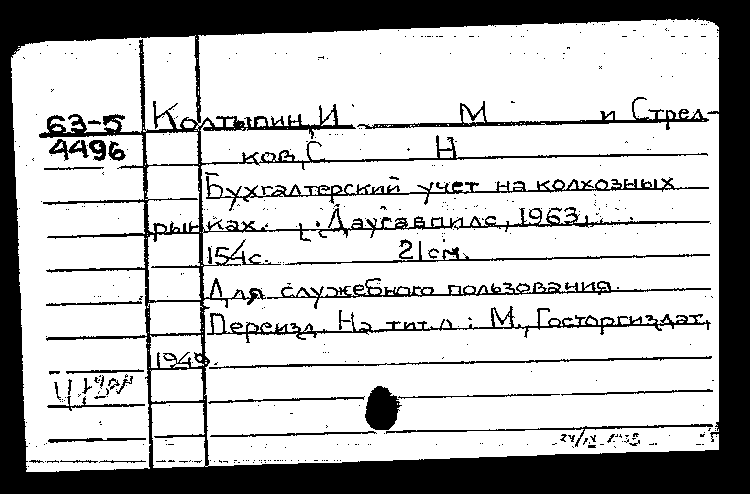 63-5 Колтыпин, И М и Стрел-
4496 ков, С Н
Бухгалтерский учет на колхозных
рынках. Даугавпилс, 1963.
154с. 21 см.
Для служебного пользования.
Переизд. На тит. л: М., Госторгиздат,
1949.